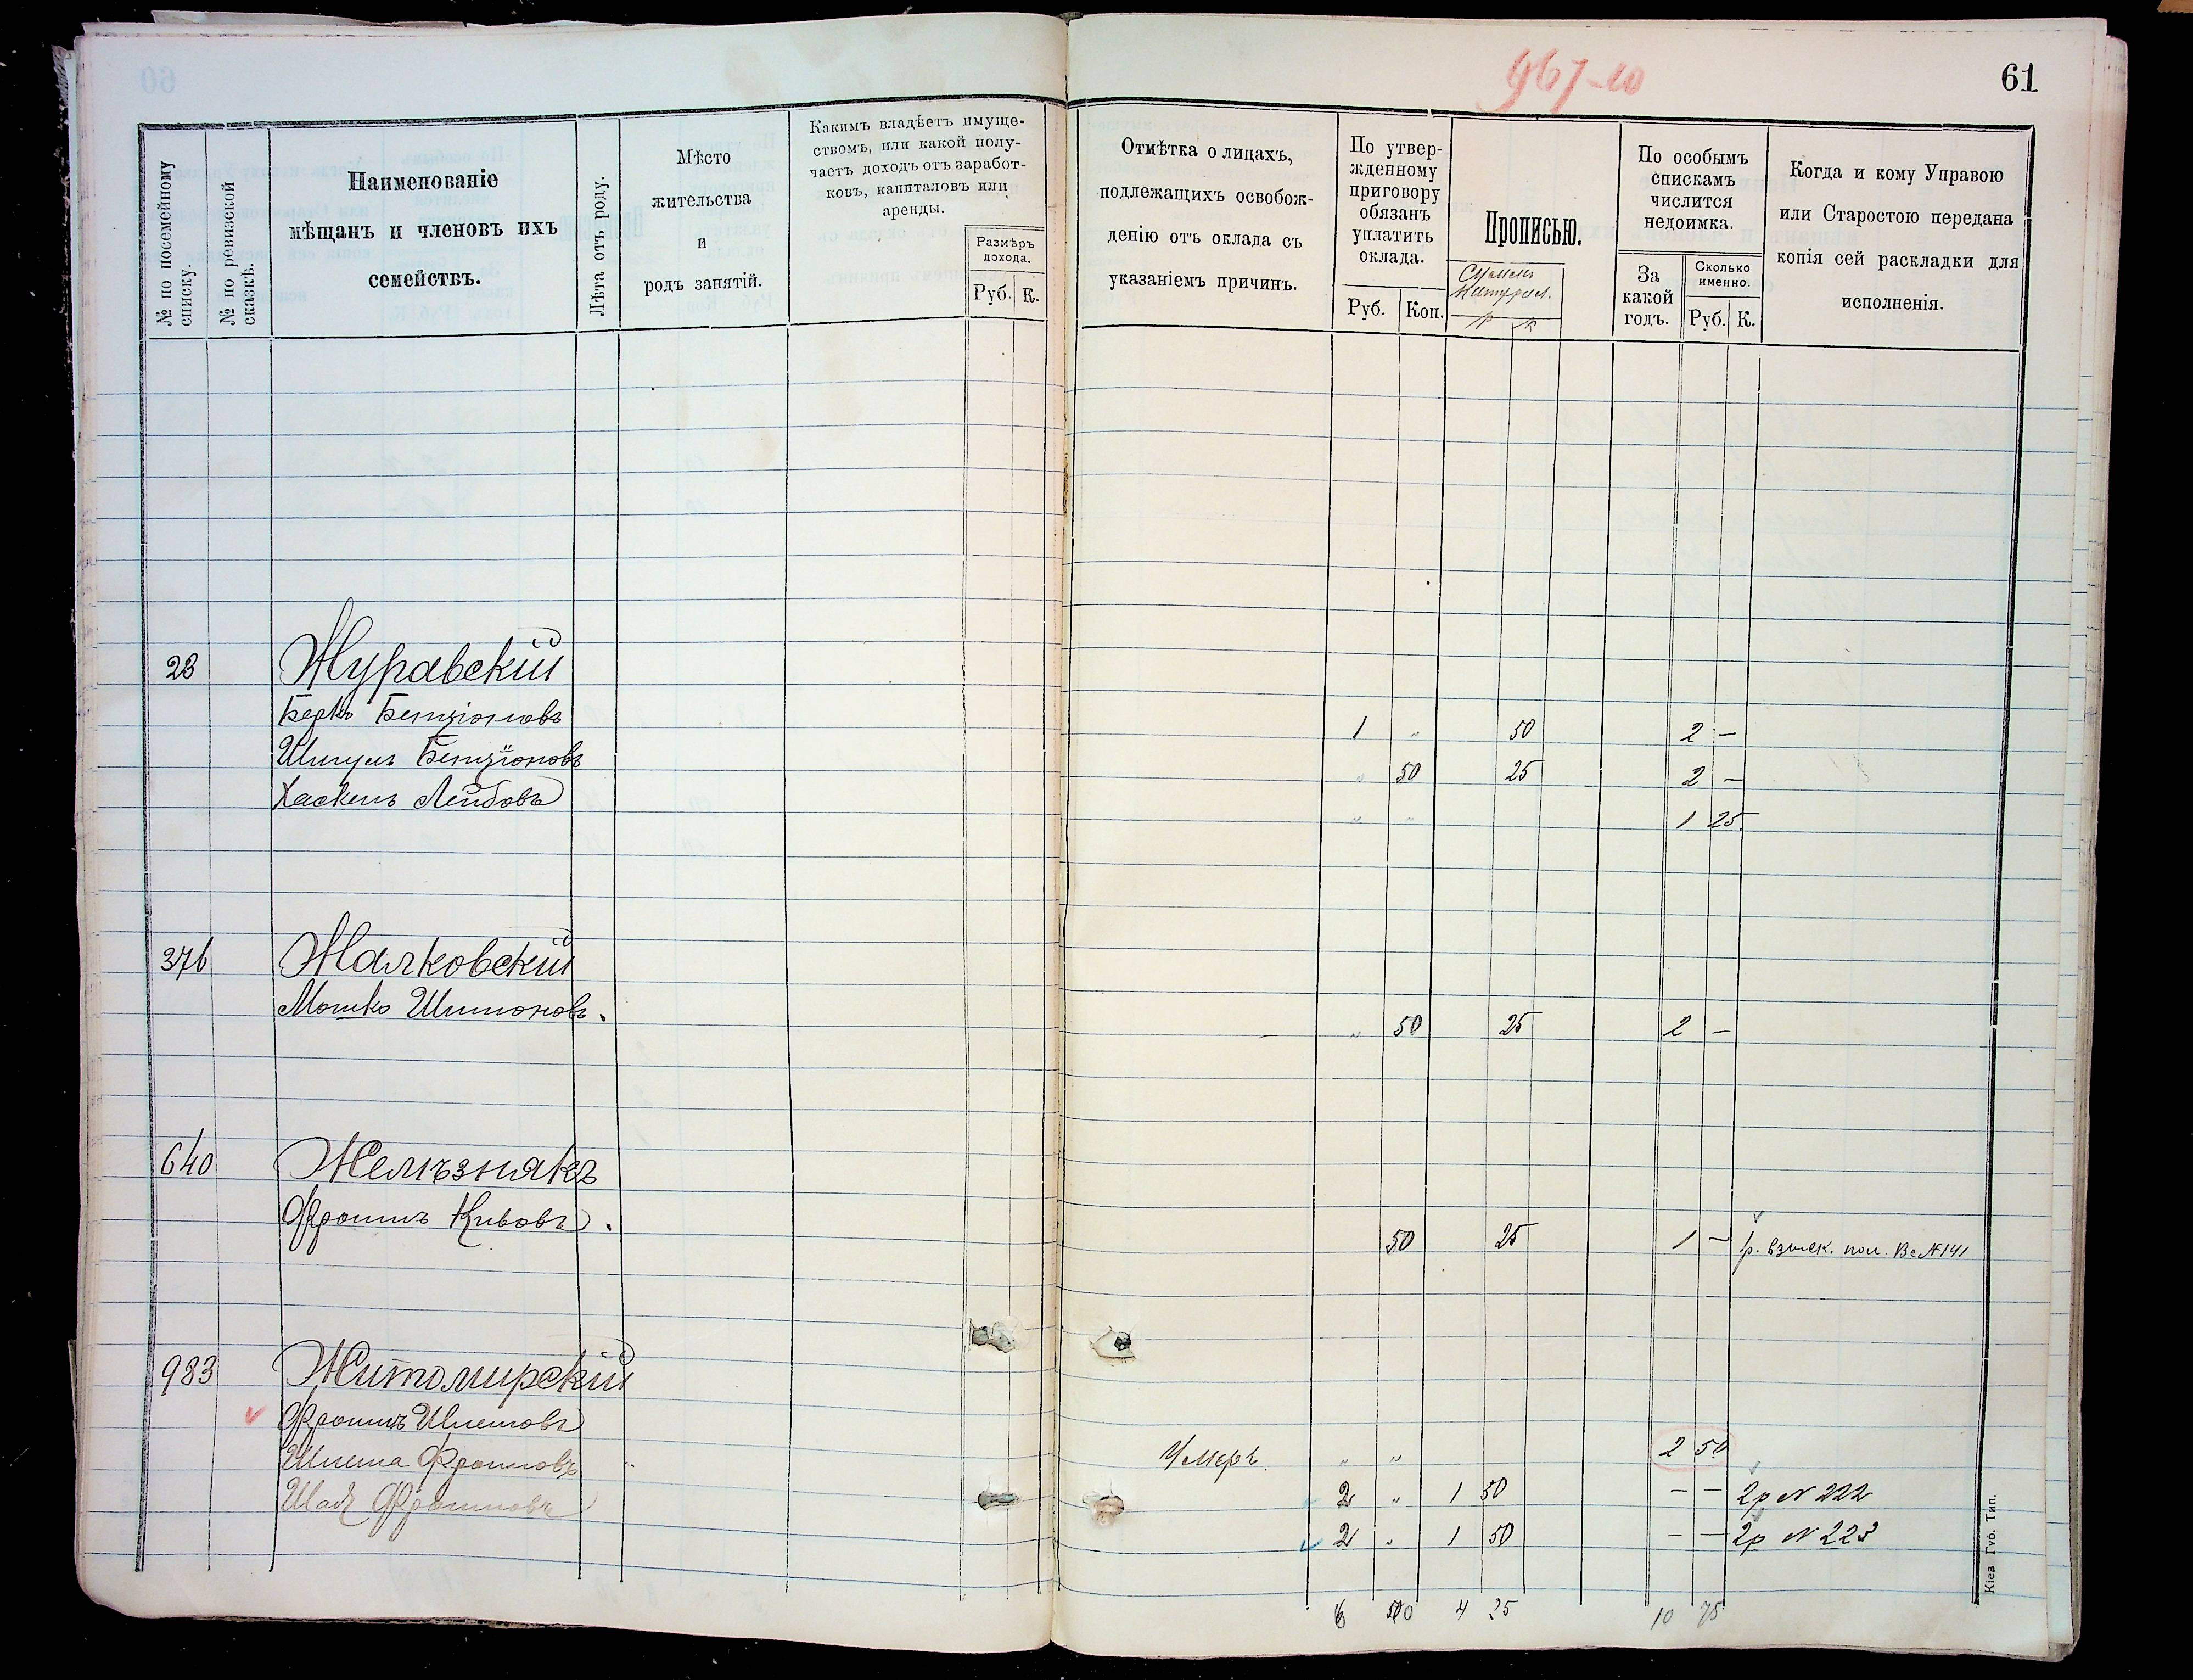 967-10
61
№ по посемейному списку.
№ по ревизской сказкѣ.
Наименованіе
мѣщанъ и членовъ ихъ
семействъ.
Лѣта отъ роду.
Мѣсто
жительства
и
родъ занятій.
Какимъ владѣетъ имуще-
ствомъ, или какой полу-
чаетъ доходъ отъ заработ-
ковъ, капиталовъ или
аренды.
Размѣръ
дохода.
Руб. К.
Отмѣтка о лицахъ,
подлежащихъ освобож-
денію отъ оклада съ
указаніемъ причинъ.
По утвер-
жденному
приговору
обязанъ
уплатить
оклада.
Руб. Коп.
Прописью.
По особымъ
спискамъ
числится
недоимка.
За
какой
годъ.
Сколько
именно.
Руб. К.
Когда и кому Управою
или Старостою передана
копія сей раскладки для
исполненія.
23 Журавскій
Беркъ Бенціоновъ 1 " 50 2 —
Шмулъ Бенціоновъ " 50 25 2 —
Хаскель Лейбовъ " " 1 25
376 Жалковскій
Мошко Шимоновъ. " 50 25 2 —
640 Желѣзнякъ
Фроимъ Кивовъ. 50 25 1 — 1р. взыск. пол. Вс №141
983 Житомирскій
Фроимъ Шлемовъ Умеръ. " " 2 50
Шлема Фроимовъ 2 " 1 50 — — 2р № 222
Фроимовъ 2 " 1 50 — — 2р № 223
6 50 4 25 10 75
Кіев Губ. Тип.